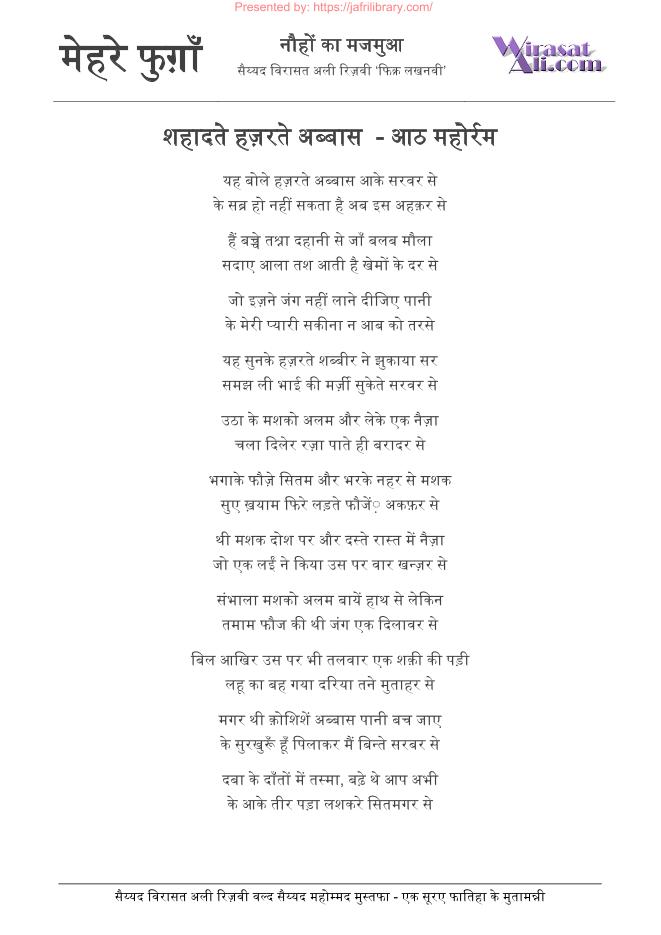 Presented by: https://jafrilibrary.com/
मेहरे फुग़ाँ
नौहों का मजमुआ
सैय्यद विरासत अली रिज़वी ‘फिक्र लखनवी’
Wirasat
Ali.com
शहादते हज़रते अब्बास - आठ महोर्रम
यह बोले हज़रते अब्बास आके सरवर से
के सब्र हो नहीं सकता है अब इस अहक़र से
हैं बच्चे तश्ना दहानी से जाँ बलब मौला
सदाए आला तश आती है खेमों के दर से
जो इज़ने जंग नहीं लाने दीजिए पानी
के मेरी प्यारी सकीना न आब को तरसे
यह सुनके हज़रते शब्बीर ने झुकाया सर
समझ ली भाई की मर्ज़ी सुकेते सरवर से
उठा के मशको अलम और लेके एक नैज़ा
चला दिलेर रज़ा पाते ही बरादर से
भगाके फौज़े सितम और भरके नहर से मशक
सुए ख़याम फिरे लड़ते फौजें़ अकफ़र से
थी मशक दोश पर और दस्ते रास्त में नैज़ा
जो एक लईं ने किया उस पर वार खन्ज़र से
संभाला मशको अलम बायें हाथ से लेकिन
तमाम फौज की थी जंग एक दिलावर से
बिल आखिर उस पर भी तलवार एक शक़ी की पड़ी
लहू का बह गया दरिया तने मुताहर से
मगर थी क़ोशिशें अब्बास पानी बच जाए
के सुरखुरूँ हूँ पिलाकर मैं बिन्ते सरबर से
दबा के दाँतों में तस्मा, बढ़े थे आप अभी
के आके तीर पड़ा लशकरे सितमगर से
सैय्यद विरासत अली रिज़वी वल्द सैय्यद महोम्मद मुस्तफा - एक सूरए फातिहा के मुतामन्नी